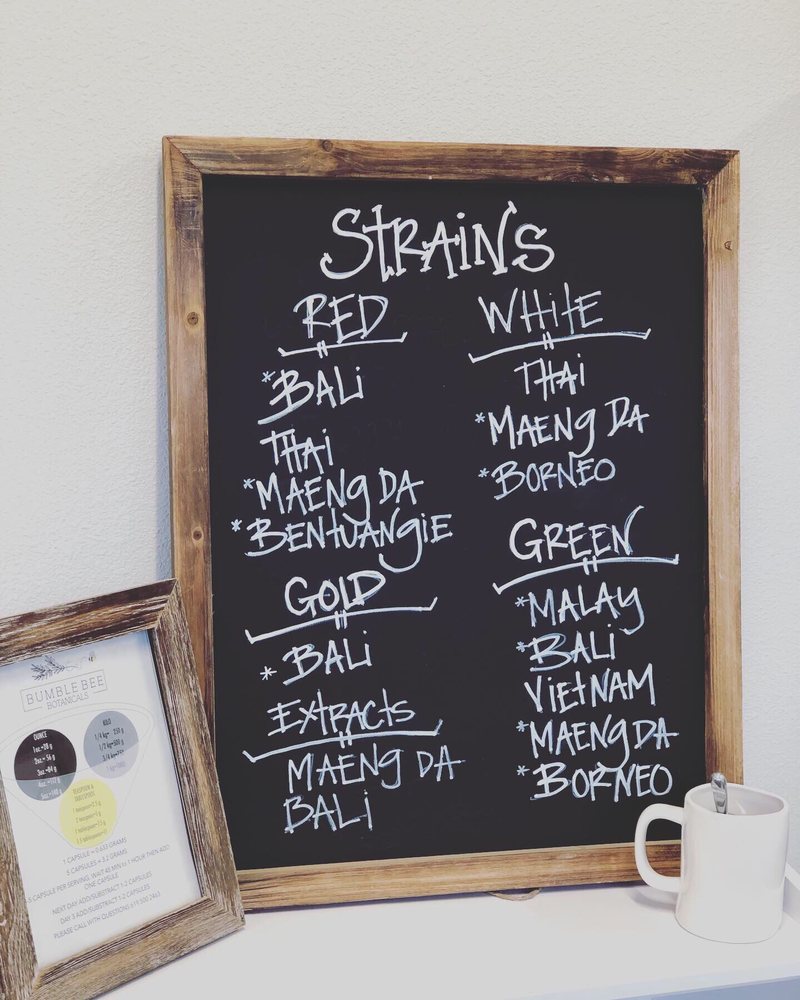 STRAINS
RED
*BALI
THAI
*MAENG DA
*BENTUANGIE
GOLD
*BALI
EXTRACTS
MAENG DA
BALI
WHITE
THAI
*MAENG DA
*BORNEO
GREEN
*MALAY
*BALI
VIETNAM
*MAENG DA
*BORNEO
BUMBLE BEE
BOTANICALS
OUNCE
1oz.=28 g
2oz.= 56 g
3oz.=84 g
KILO
1/4 kg= 250 g
1/2 kg=500 g
1 CAPSULE = 0.633 GRAMS
5 CAPSULES = 3.2 GRAMS
CAPSULE PER SERVING, WAIT 45 MIN to 1 HOUR THEN ADD
ONE CAPSULE
NEXT DAY ADD/SUBSTRACT 1-2 CAPSULES
DAY 3 ADD/SUBSTRACT 1-2 CAPSULES
PLEASE CALL WITH QUESTIONS 619.500.2463